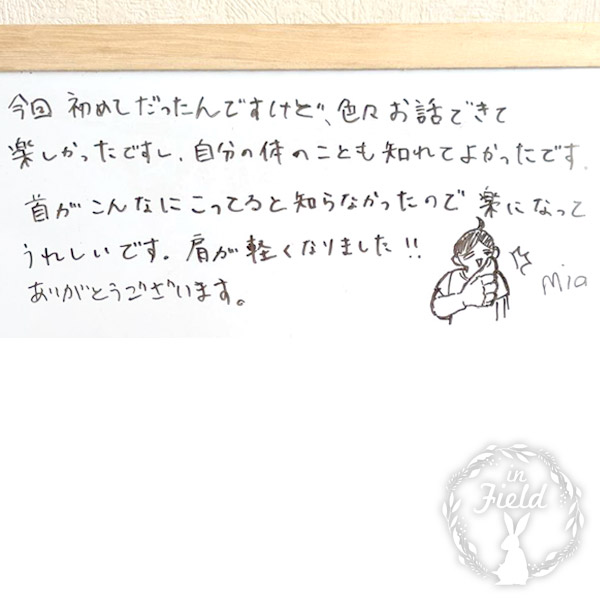 今回 初めてだったんですけど、色々お話できて
楽しかったですし、自分の体のことも知れてよかったです。
首がこんなにこってると知らなかったので 楽になって
うれしいです。肩が軽くなりました!!
ありがとうございます。
Mia
in
Field